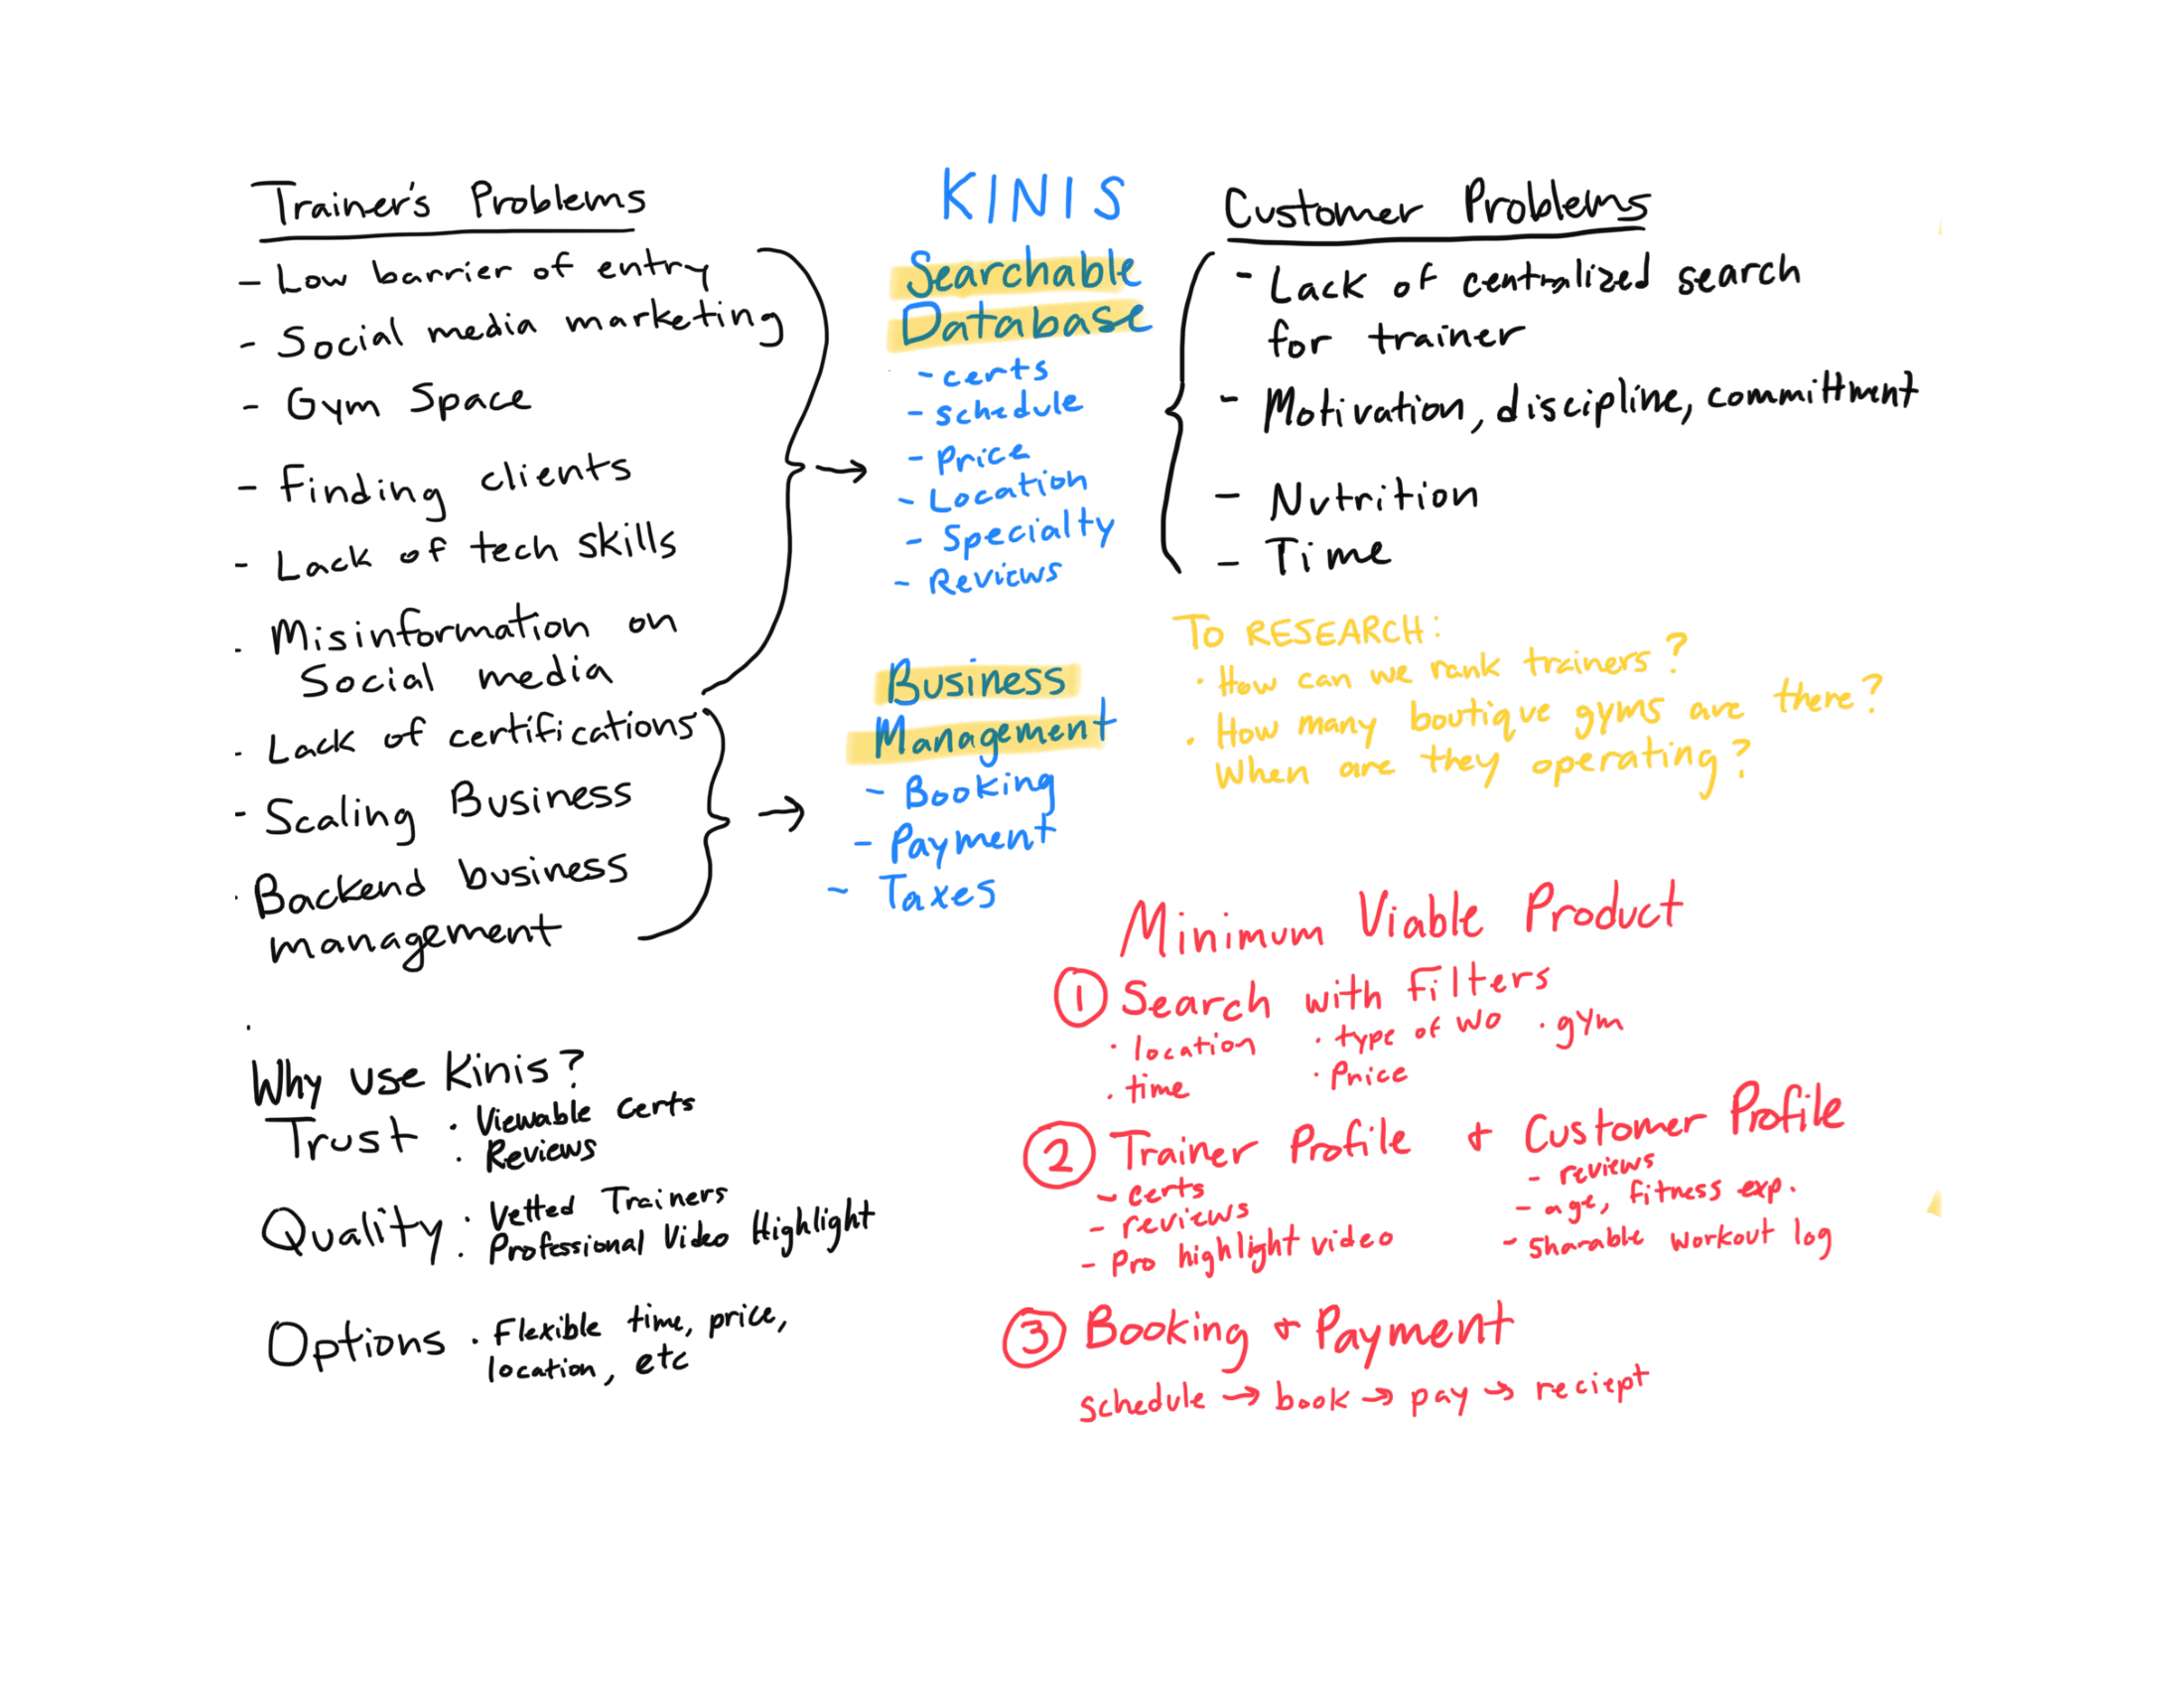 Trainer's Problems
- Low barrier of entry
- Social media marketing
- Gym Space
- Finding clients
- Lack of tech skills
. Misinformation on
Social media
. Lack of certifications
- Scaling Business
. Backend business
management
.
KINIS
Searchable
Database
- certs
- schedule
- Price
- Location
- Specialty
- Reviews
Business
Management
- Booking
- Payment
- Taxes
Customer Problems
- Lack of centralized search
for trainer
- Motivation, discipline, committment
- Nutrition
- Time
TO RESEARCH:
· How can we rank trainers?
· How many boutique gyms are there?
When are they operating?
Why use Kinis?
Trust : Viewable Certs
: Reviews
Quality : Vetted Trainers
: Professional Video Highlight
Options · Flexible time, price,
location, etc
Minimum Viable Product
① Search with Filters
· location · type of WO · gym
· time · Price
② Trainer Profile + Customer Profile
- certs
- reviews
- Pro highlight video
- reviews
- age, fitness exp.
- sharable workout log
③ Booking + Payment
schedule → book → pay → reciept